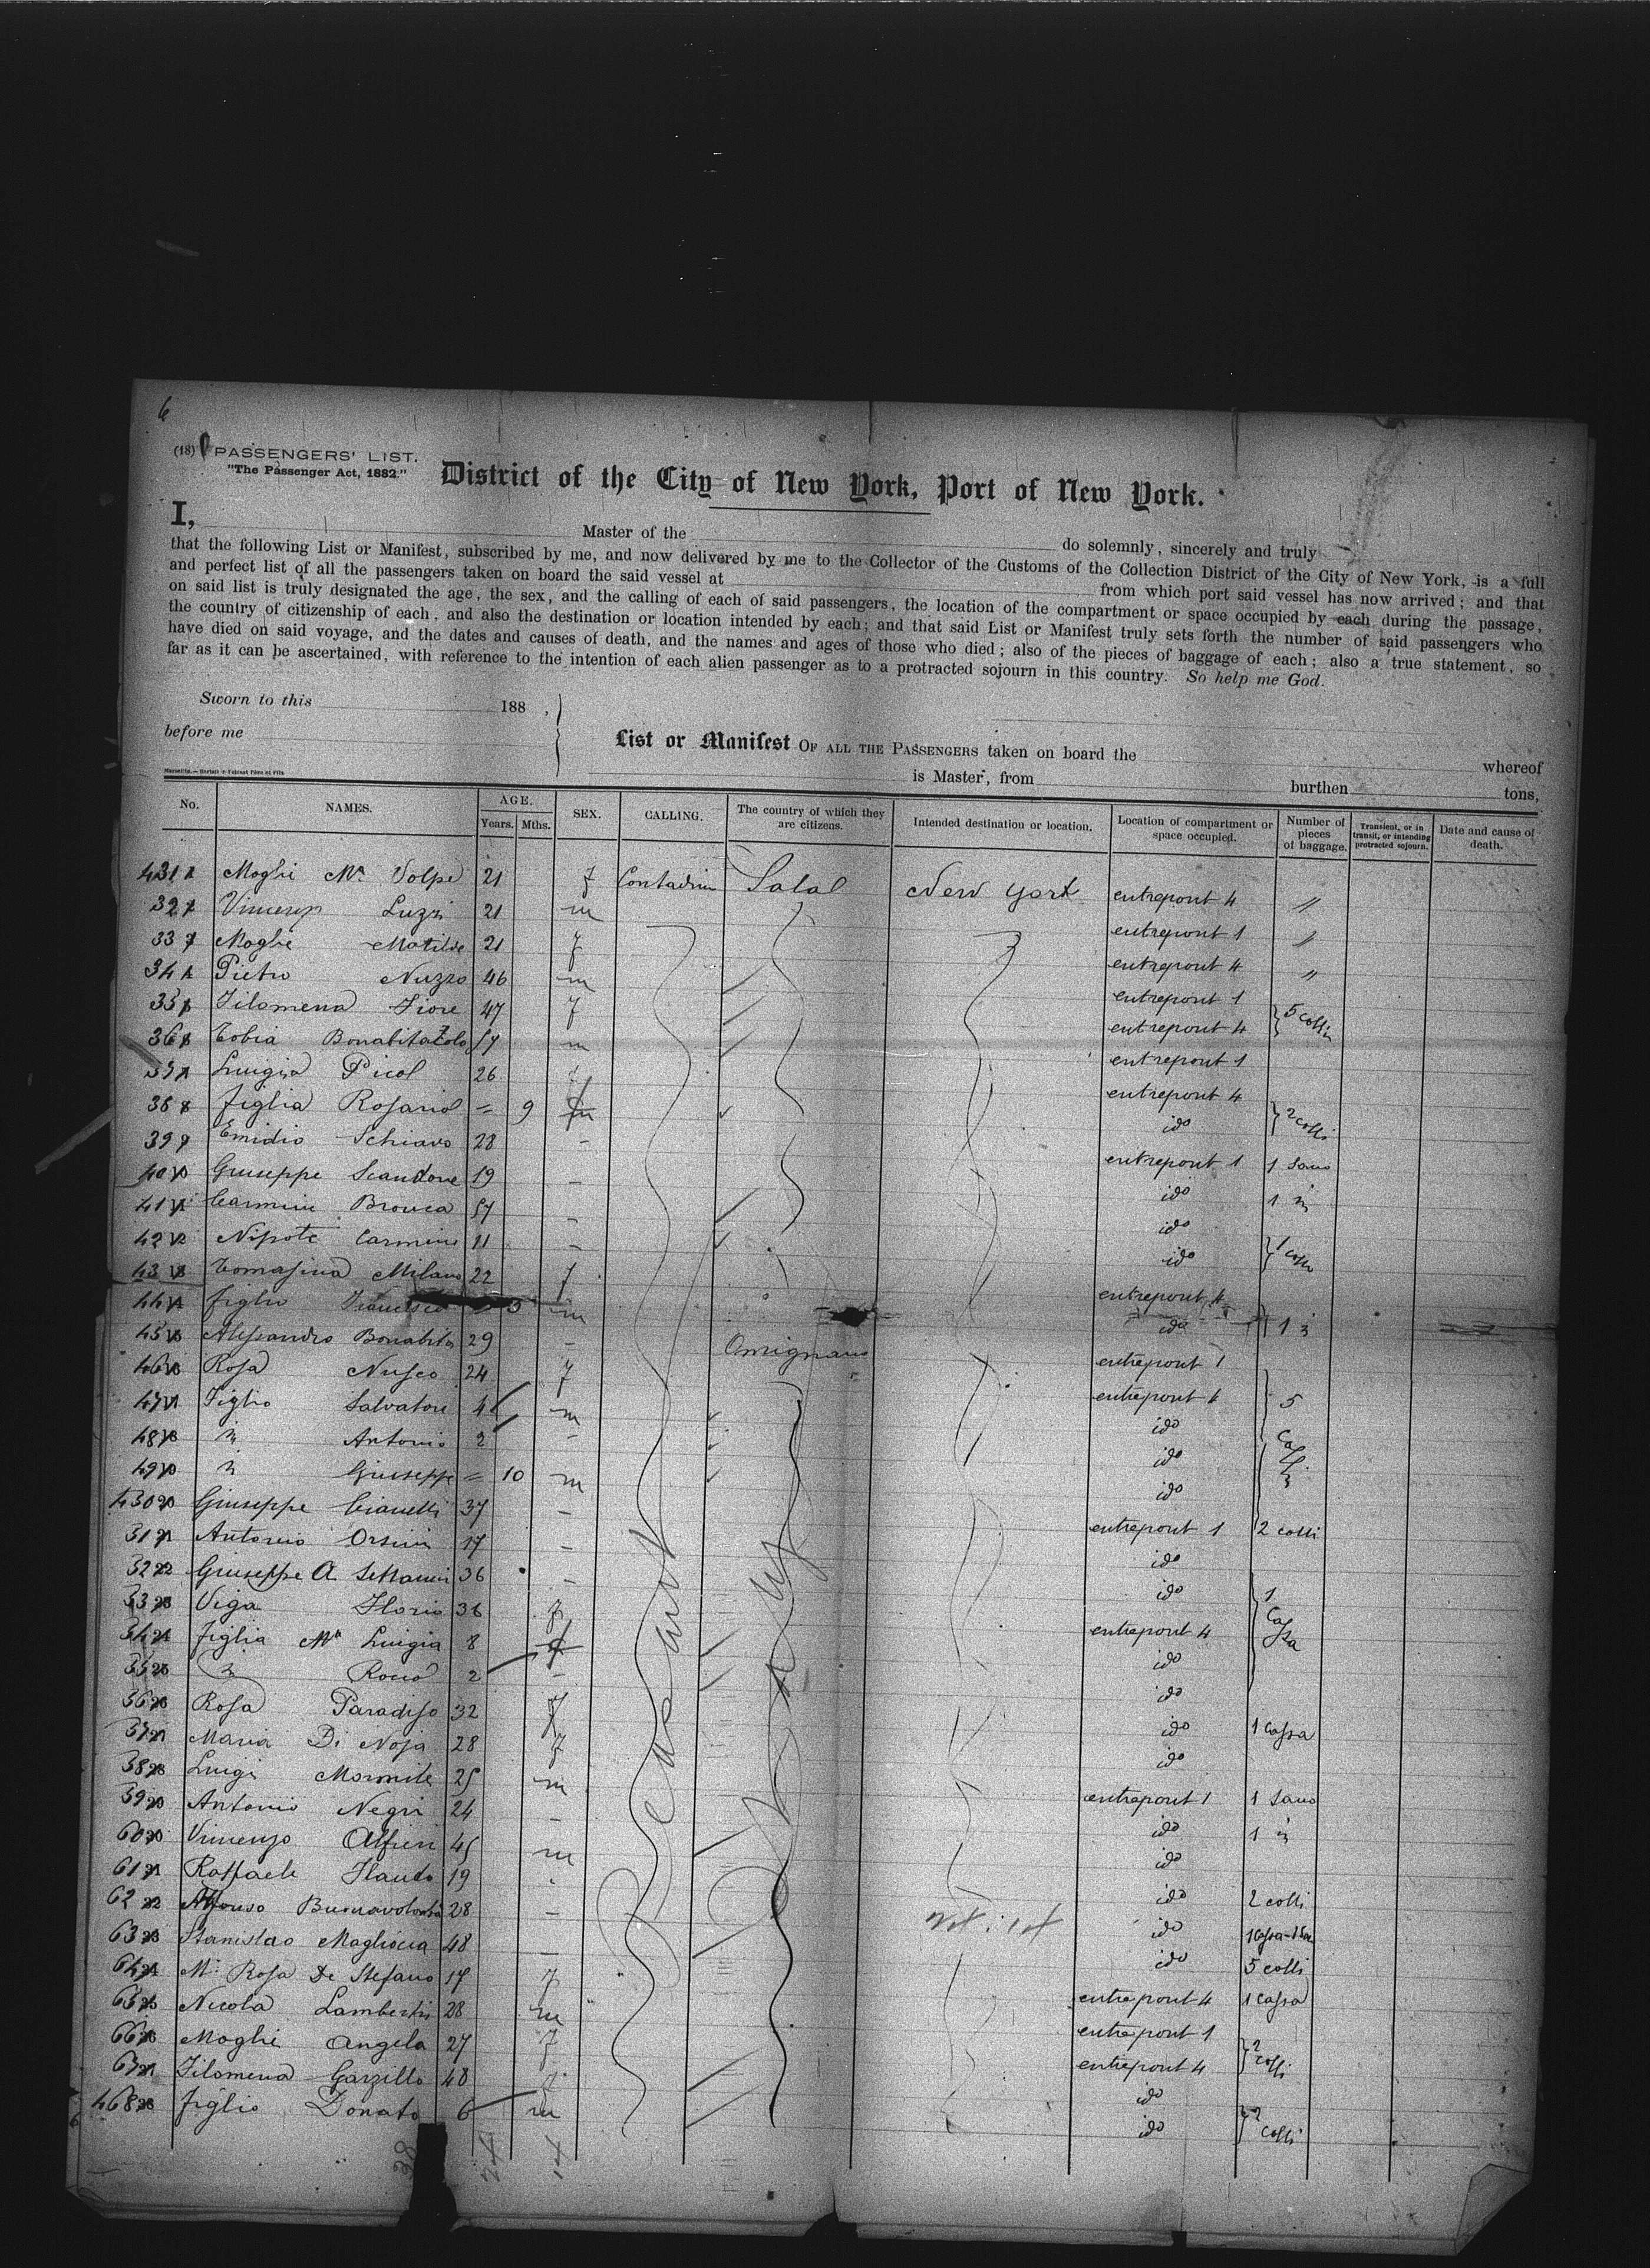 6
(18) PASSENGERS' LIST.
"The Passenger Act, 1882."
District of the City of New York, Port of New York.
I, Master of the do solemnly, sincerely and truly
that the following List or Manifest, subscribed by me, and now delivered by me to the Collector of the Customs of the Collection District of the City of New York, is a full
and perfect list of all the passengers taken on board the said vessel at from which port said vessel has now arrived; and that
on said list is truly designated the age, the sex, and the calling of each of said passengers, the location of the compartment or space occupied by each during the passage,
the counlry of citizenship of each, and also the destination or location intended by each; and that said List or Manifest truly sets forth the number of said passengers who
have died on said voyage, and the dates and causes of death, and the names and ages of those who died; also of the pieces of baggage of each; also a true statement, so
far as it can be ascertained, with reference to the intention of each alien passenger as to a protracted sojourn in this country. So help me God.
Sworn to this 188 ,
before me
List or Manifest OF ALL THE PASSENGERS taken on board the whereof
is Master, from burthen tons,
No. NAMES. AGE. Years. Mths. SEX. CALLING. The country of which they are citizens. Intended destination or location. Location of compartment or space occupied. Number of pieces of baggage. Transient, or in transit, or intending protracted sojourn. Date and cause of death.
431 Moglie Ma Volpe 21 f Contadin New York entrepont 4 "
32 Luzzi 21 m entrepont 1 "
33 Moglie Matilde 21 f entrepont 4 "
34 Pietro Nuzzo 46 m entrepont 1
35 Filomena Fiore 47 f entrepont 4 5 colli
36 Tobia 57 m entrepont 1
37 Luigia Picol 26 f entrepont 4
38 figlia Rosario 9 m ido 2 colli
39 Emidio Schiavo 28 - entrepont 1 1
40 Giuseppe Scandone 19 - ido 1
41 Carmine Bronca 57 - ido
42 Nipote Carmine 11 - ido 1
43 Tomasina Milano 22 f entrepont 4
44 figlio Francesco 3 m ido 1
45 Alessandro Bonabita 29 - entrepont 1
46 Rosa Nusco 24 f entrepont 4 5 Colli
47 Figlio Salvatore 4 m ido
48 Antonio 2 - ido
49 Giuseppe 10 m ido
430 Giuseppe Cianelli 37 - entrepont 1 2 colli
31 Antonio Orsini 17 - ido
32 Giuseppe A Settanni 36 - ido 1 Cassa
33 Viga Florio 36 f entrepont 4
34 figlia Ma Luigia 8 f ido
35 Rocco 2 - ido
36 Rosa Paradiso 32 f ido 1 Cassa
37 Maria Di Noja 28 f ido
38 Luigi Mormile 25 m entrepont 1 1
39 Antonio Negri 24 - ido 1
60 Vincenzo Alfieri 45 m ido
61 Raffaele Flauto 19 ido 2 colli
62 Alfonso 28 - ido
63 Stanislao Magliocca 48 - ido 5 colli
64 Ma Rosa De Stefano 17 f entrepont 4 1 Cassa
65 Nicola Lambertis 28 m entrepont 1
66 Moglie Angela 27 f entrepont 4 2 colli
67 Filomena Garzillo 40 f ido
468 figlio Donato 6 m ido 2 Colli